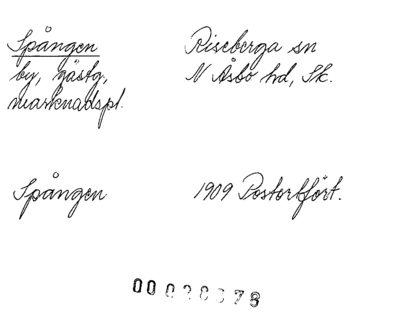 Spången
Riseberga sn
by, gästg,
N Åsbo hd, Sk.
marknadspl.
Spången
1909 Postortfört.